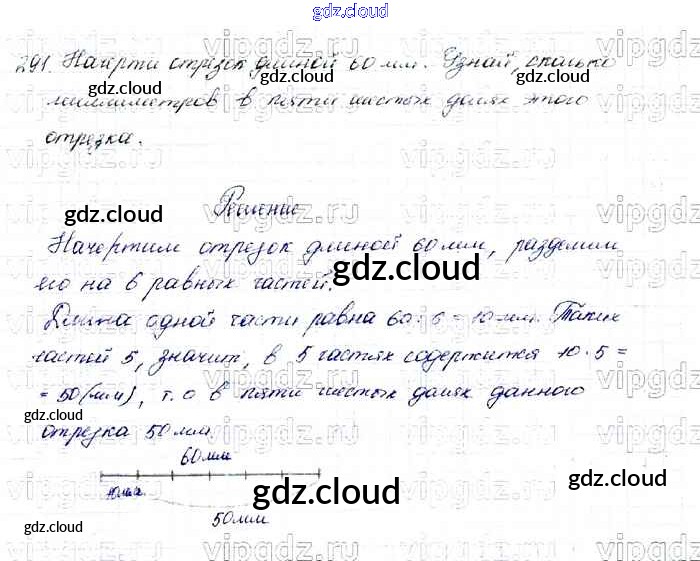 gdz.cloud
291. Начерти отрезок длиной 60 мм. Узнай, сколько
миллиметров в пяти шестых долях этого
отрезка.
Решение
Начертим отрезок длиной 60 мм, разделим
его на 6 равных частей.
Длина одной части равна 60 : 6 = 10 мм. Таких
частей 5, значит, в 5 частях содержится 10 · 5 =
= 50 (мм), т. о в пяти шестых долях данного
отрезка 50 мм.
60 мм
10 мм
50 мм
gdz.cloud
gdz.cloud
gdz.cloud
gdz.cloud
gdz.cloud
gdz.cloud
gdz.cloud
gdz.cloud
vipgdz.ru